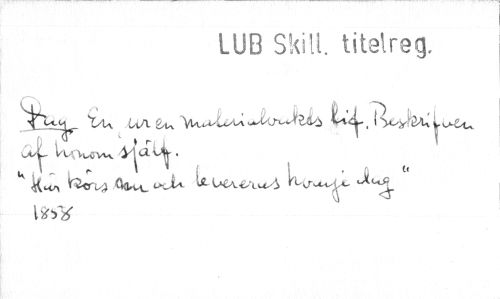 LUB Skill. titelreg.
Dag. En uren materialvakts lif. Beskrifven
af honom själf.
"Här körs och levereras hvarje dag"
1858